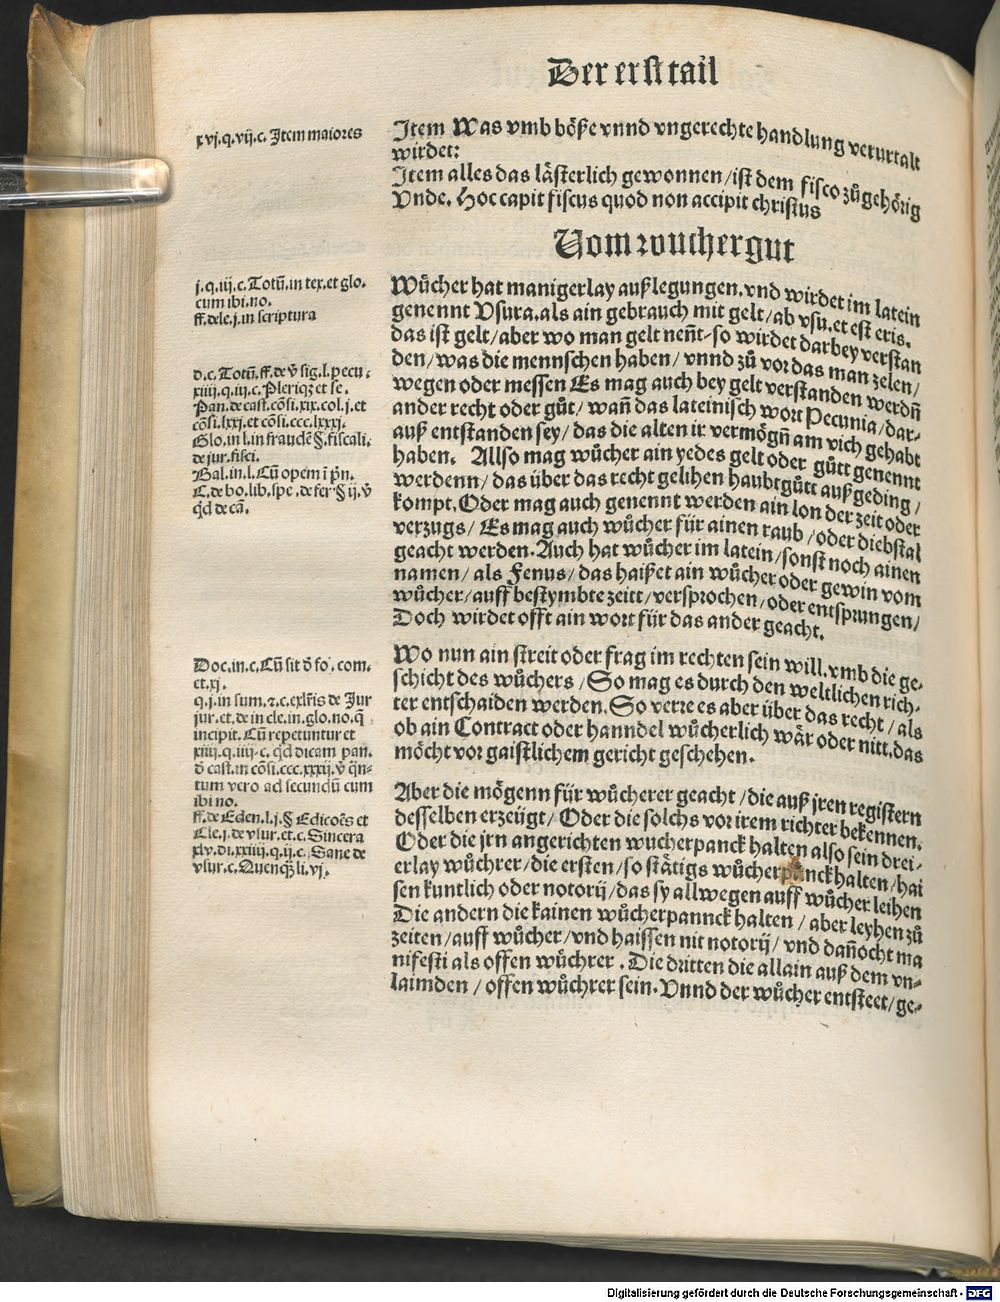 Der erst tail
xvj.q.vij.c. Item maiores
Item Was vmb böße vnnd vngerechte handlung verurtalt
wirdet:
Item alles das lästerlich gewonnen/ist dem fisco zůgehörig
Vnde. Hoc capit fiscus quod non accipit christus
Vom wuchergut
j.q.iij.c.Totū.in tex.et glo.
cum ibi.no.
ff.dele.j.in scriptura
d.c.Totū.ff.de ṽ sig.l.pecu.
xiiij.q.iij.c.Pleriqȝ et se.
Pan.de cast.cōsi.xix.col.j.et
cōsi.lxxj.et cōsi.ccc.lxxxj.
Glo.in l.in fraudē §.fiscali.
de jur.fisci.
Bal.in.l.Cū opem ī p̄n.
C.de bo.lib.spe.de fer § ij.ṽ
q̄d de cā.
Wůcher hat manigerlay außlegungen.vnd wirdet im latein
genennt Vsura.als ain gebrauch mit gelt/ab vsu.et est eris.
das ist gelt/aber wo man gelt neñt-so wirdet darbey verstan
den/was die mennschen haben/vnnd zů vor das man zelen/
wegen oder messen Es mag auch bey gelt verstanden werdñ
ander recht oder gůt/wañ das lateinisch wort Pecunia/dar-
auß entstanden sey/das die alten ir vermögñ am vich gehabt
haben. Allso mag wůcher ain yedes gelt oder gůtt genennt
werdenn/das über das recht gelihen haubtgůtt außgeding/
kompt.Oder mag auch genennt werden ain lon der zeit oder
verzugs/Es mag auch wůcher für ainen raub/oder diebstal
geacht werden.Auch hat wůcher im latein/sonst noch ainen
namen/als Fenus/das haißet ain wůcher oder gewin vom
wůcher/auff bestymbte zeitt/versprochen/oder entsprungen/
Doch wirdet offt ain wort für das ander geacht.
Doc.in.c.Cū sit ð fo.com.
et.xj.
q.j.in sum.⁊.c.exlr̄is de Jur
jur.et.de in cle.in.glo.no.q̄
incipit.Cū repetuntur et
xiiij.q.iiij.c.q̄d dicam pan.
ð cast.in cōsi.ccc.xxxij.ṽ q̄n-
tum vero ad secundū cum
ibi no.
ff.de Eden.l.j.§ Edicoēs et
Cle.j.de vsur.et.c.Sincera
xlv.di.xxiiij.q.ij.c.Sane de
vsur.c.Quenqȝ li.vj.
Wo nun ain streit oder frag im rechten sein will.vmb die ge-
schicht des wůchers/So mag es durch den weltlichen rich-
ter entschaiden werden.So verre es aber über das recht/als
ob ain Contract oder hanndel wůcherlich wär oder nitt.das
möcht vor gaistlichem gericht geschehen.
Aber die mögenn für wůcherer geacht/die auß jren registern
desselben erzeügt/Oder die solchs vor irem richter bekennen.
Oder die jrn angerichten wucherpanck halten also sein drei-
erlay wůchrer/die ersten/so stätigs wůcherpanck halten/hai
sen kuntlich oder notorij/das sy allwegen auff wůcher leihen
Die andern die kainen wůcherpannck halten/aber leyhen zů
zeiten/auff wůcher/vnd haissen nit notorij/vnd dañocht ma
nifesti als offen wůchrer.Die dritten die allain auß dem vn-
laimden/offen wůchrer sein.Vnnd der wůcher entsteet/ge-
Digitalisierung gefördert durch die Deutsche Forschungsgemeinschaft - DFG